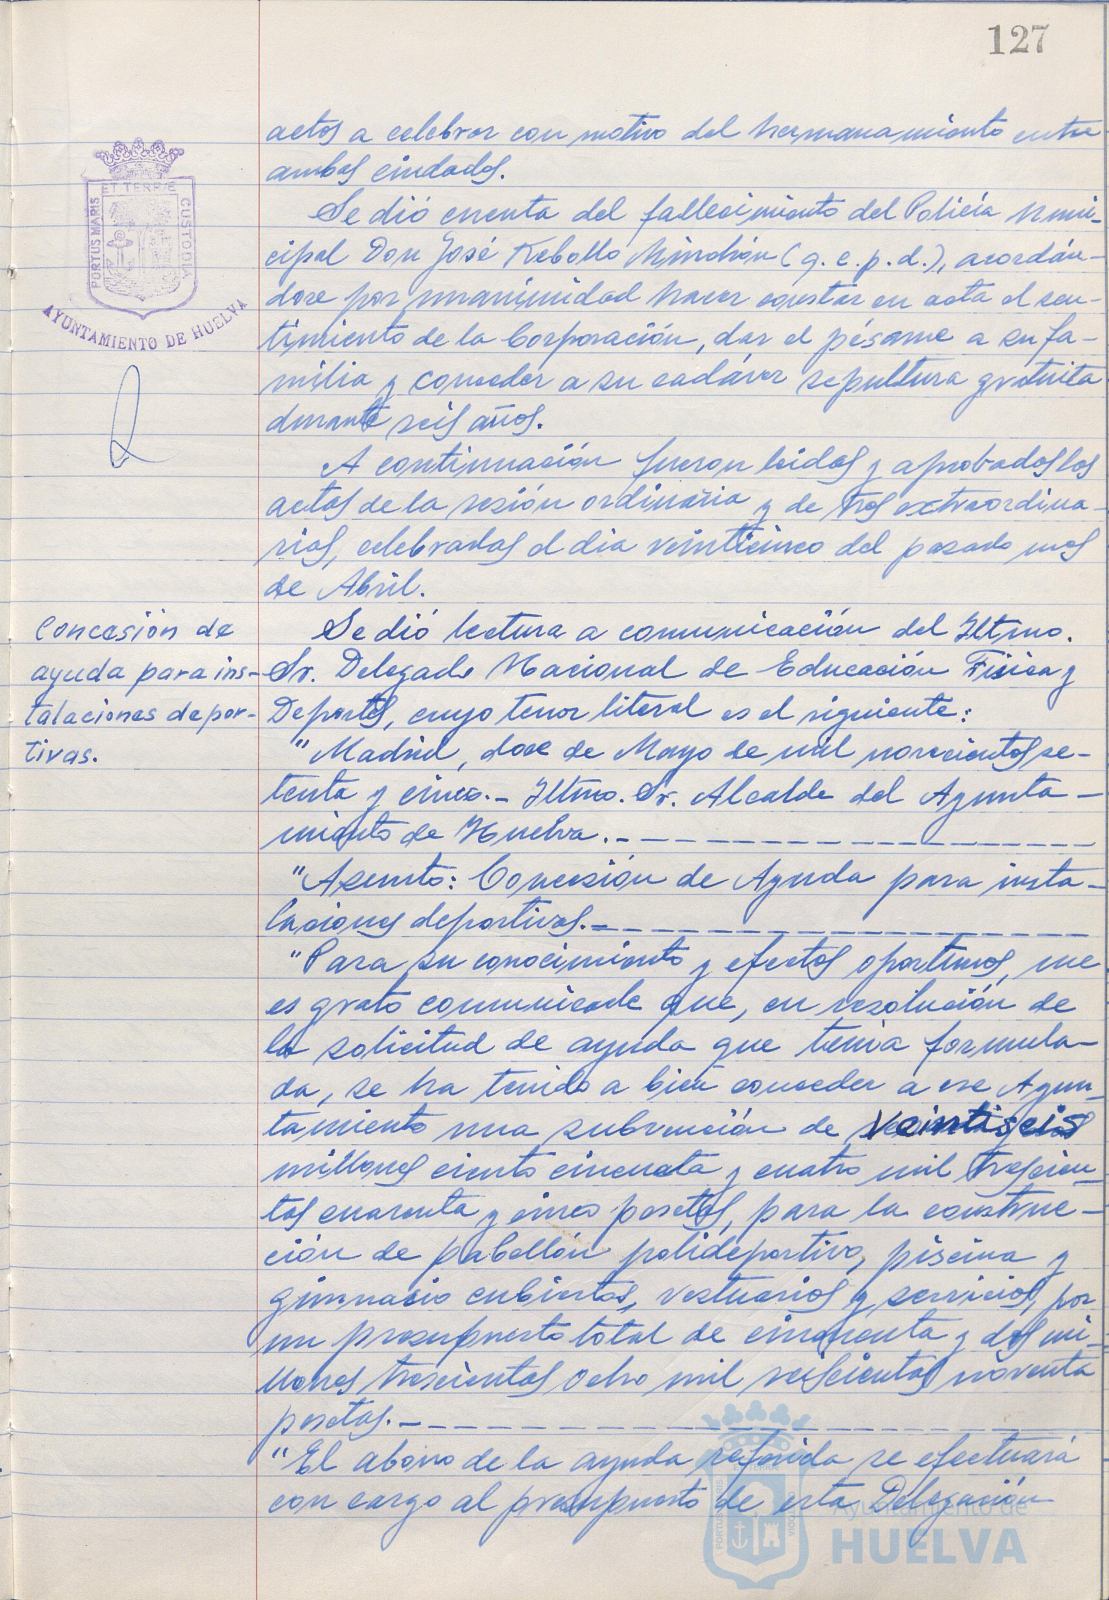 127
actos a celebrar con motivo del hermanamiento entre
ambas ciudades.
Se dió cuenta del fallecimiento del Policía Muni-
cipal Don José Rebollo (q. e. p. d.), acordán-
dose por unanimidad hacer constar en acta el sen-
timiento de la Corporación, dar el pésame a su fa-
milia y conceder a su cadáver sepultura gratuita
durante seis años.
A continuación fueron leidas y aprobadas las
actas de la sesión ordinaria y de tres extraordina-
rias, celebradas el dia veinticinco del pasado mes
de Abril.
Concesión de
ayuda para ins-
talaciones depor-
tivas.
Se dió lectura a comunicación del Iltmo.
Sr. Delegado Nacional de Educación Fisica y
Deportes, cuyo tenor literal es el siguiente:
"Madrid, doce de Mayo de mil novecientos se-
tenta y cinco.- Iltmo. Sr. Alcalde del Ayunta-
miento de Huelva.-
"Asunto: Concesión de Ayuda para insta-
laciones deportivas.-
"Para su conocimiento y efectos oportunos, me
es grato comunicarle que, en resolución de
la solicitud de ayuda que tenia formula-
da, se ha tenido a bien conceder a ese Ayun-
tamiento una subvención de veintiseis
millones ciento cincuenta y cuatro mil trescien-
tas cuarenta y cinco pesetas, para la construc-
ción de pabellón polideportivo, piscina y
gimnasio cubiertos, vestuarios y servicios, por
un presupuesto total de cincuenta y dos mi-
llones trescientas ocho mil seiscientas noventa
pesetas.-
"El abono de la ayuda referida se efectuará
con cargo al presupuesto de esta Delegación
PORTUS MARIS
ET TERRÆ
CUSTODIA
AYUNTAMIENTO DE HUELVA
Ayuntamiento de
HUELVA